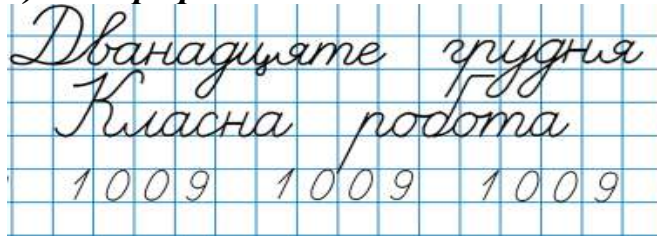 Дванадцяте грудня
Класна робота
1009 1009 1009